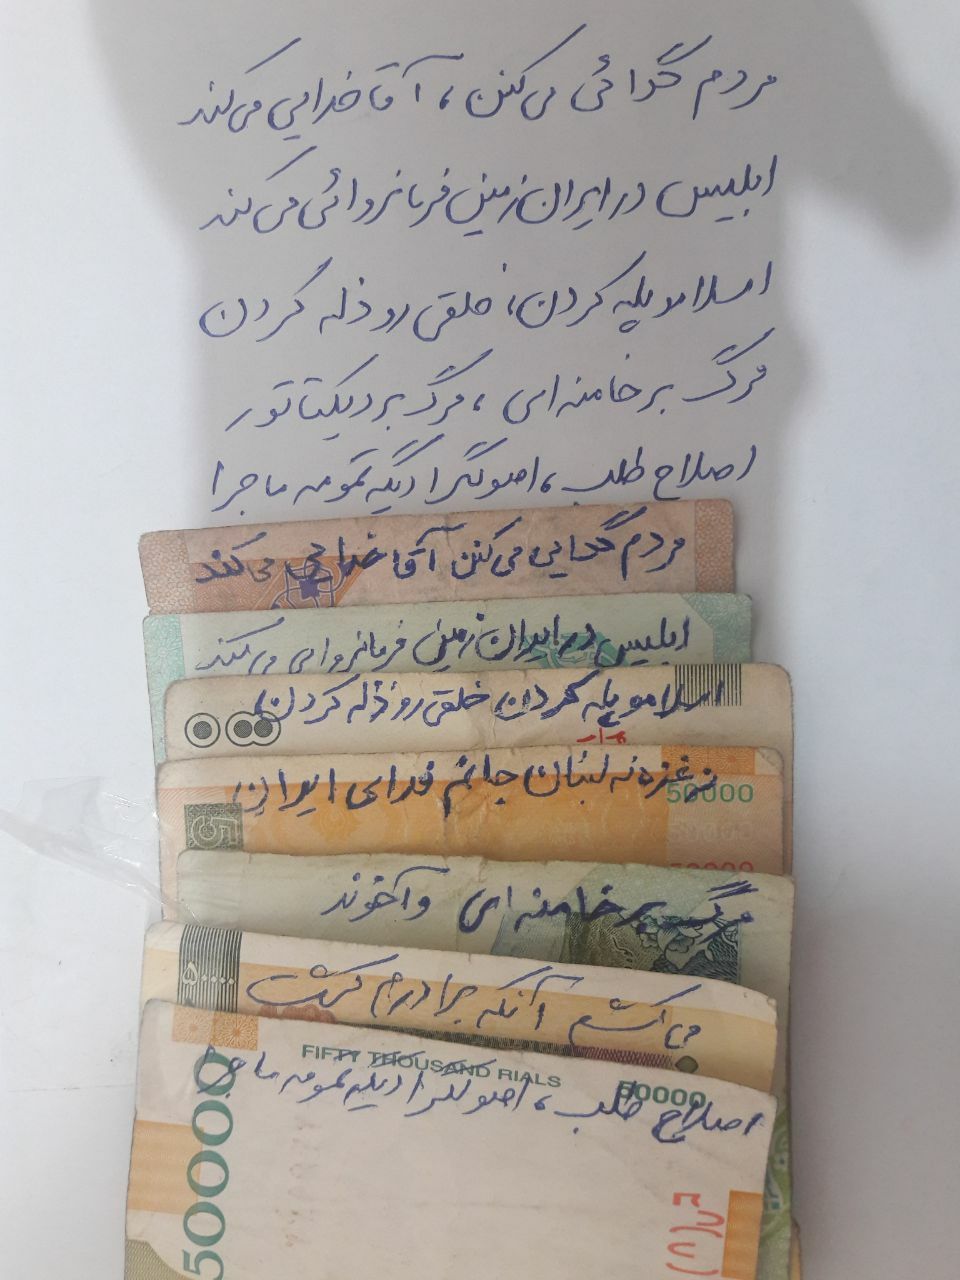 مردم گدائی می‌کنن، آقا خدایی می‌کند
ابلیس در ایران زمین فرمانروائی می‌کند
اسلامو پله کردن، خلقی رو ذله کردن
مرگ بر خامنه‌ای، مرگ بر دیکتاتور
اصلاح طلب، اصولگرا دیگه تمومه ماجرا
مردم گدایی می‌کنن آقا خدایی می‌کند
ابلیس در ایران زمین فرمانروایی می‌کند
اسلامو پله کردن خلقی رو ذله کردن
نه غزه نه لبنان جانم فدای ایران
50000
50000
50000
مرگ بر خامنه‌ای و آخوند
می‌کشم آنکه برادرم کشت
۵۰۰۰۰
FIFTY THOUSAND RIALS
50000
اصلاح طلب، اصولگرا دیگه تمومه ماجرا
50000